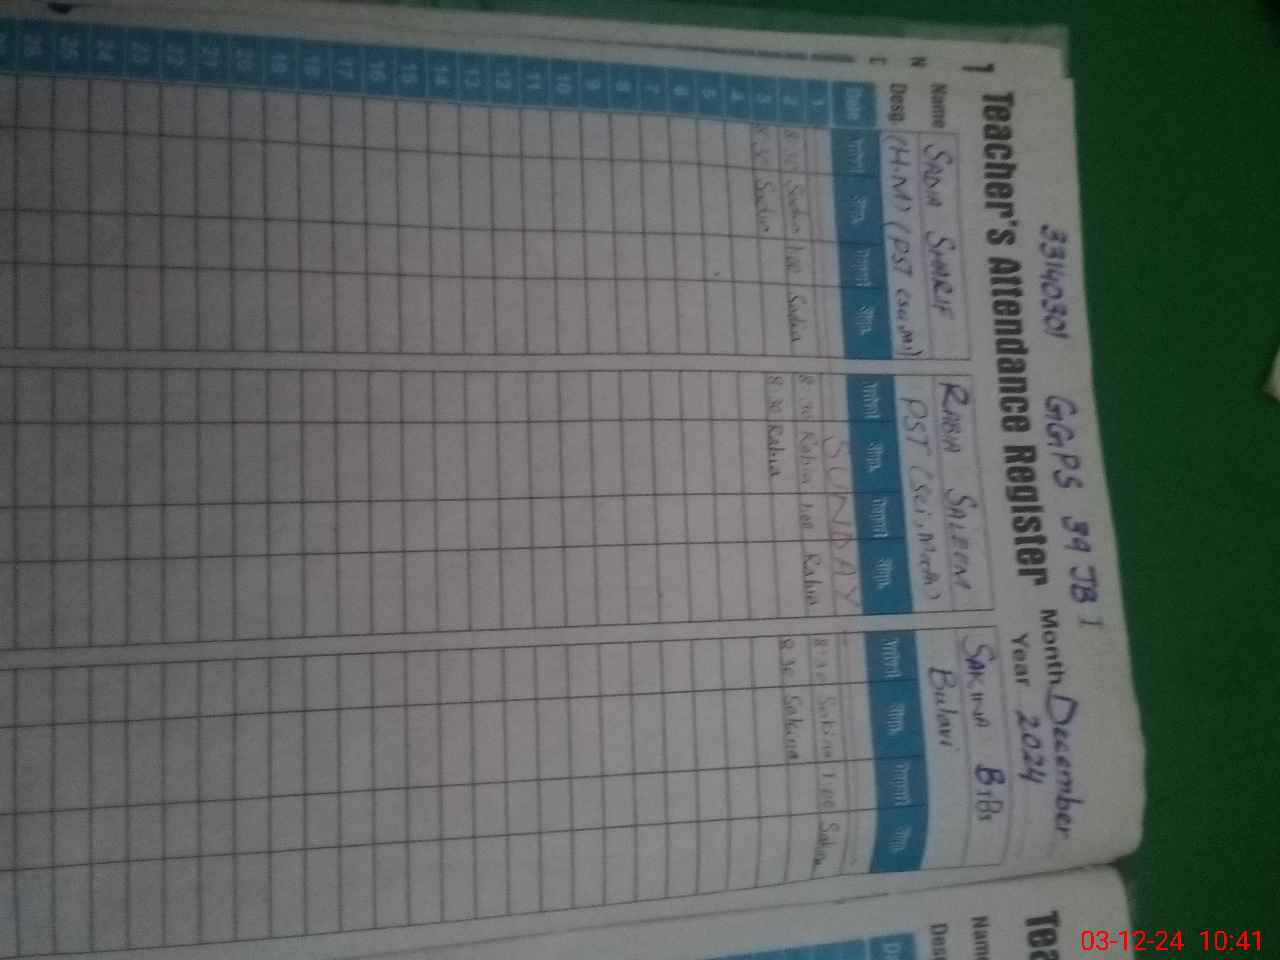 33140301 GGPS 39 JB 1
1 Teacher's Attendance Register Month December
Year 2024
Name SADIA SHARIF RABIA SALEEM SAKINA BIBI
Desg. (H.M) (PST PST Bulavi
Date Arrival Sign. Depart Sign. Arrival Sign. Depart Sign. Arrival Sign. Depart Sign.
1 SUNDAY
2 8:30 Sadia 1:00 Sadia 8:30 Rabia 1:00 Rabia 8:30 Sakina 1:00 Sakina
3 8:30 Sadia 8:30 Rabia 8:30 Sakina
4
5
6
7
8
9
10
11
12
13
14
15
16
17
18
19
20
21
22
23
24
25
26
Tea
Name
Desg
03-12-24 10:41